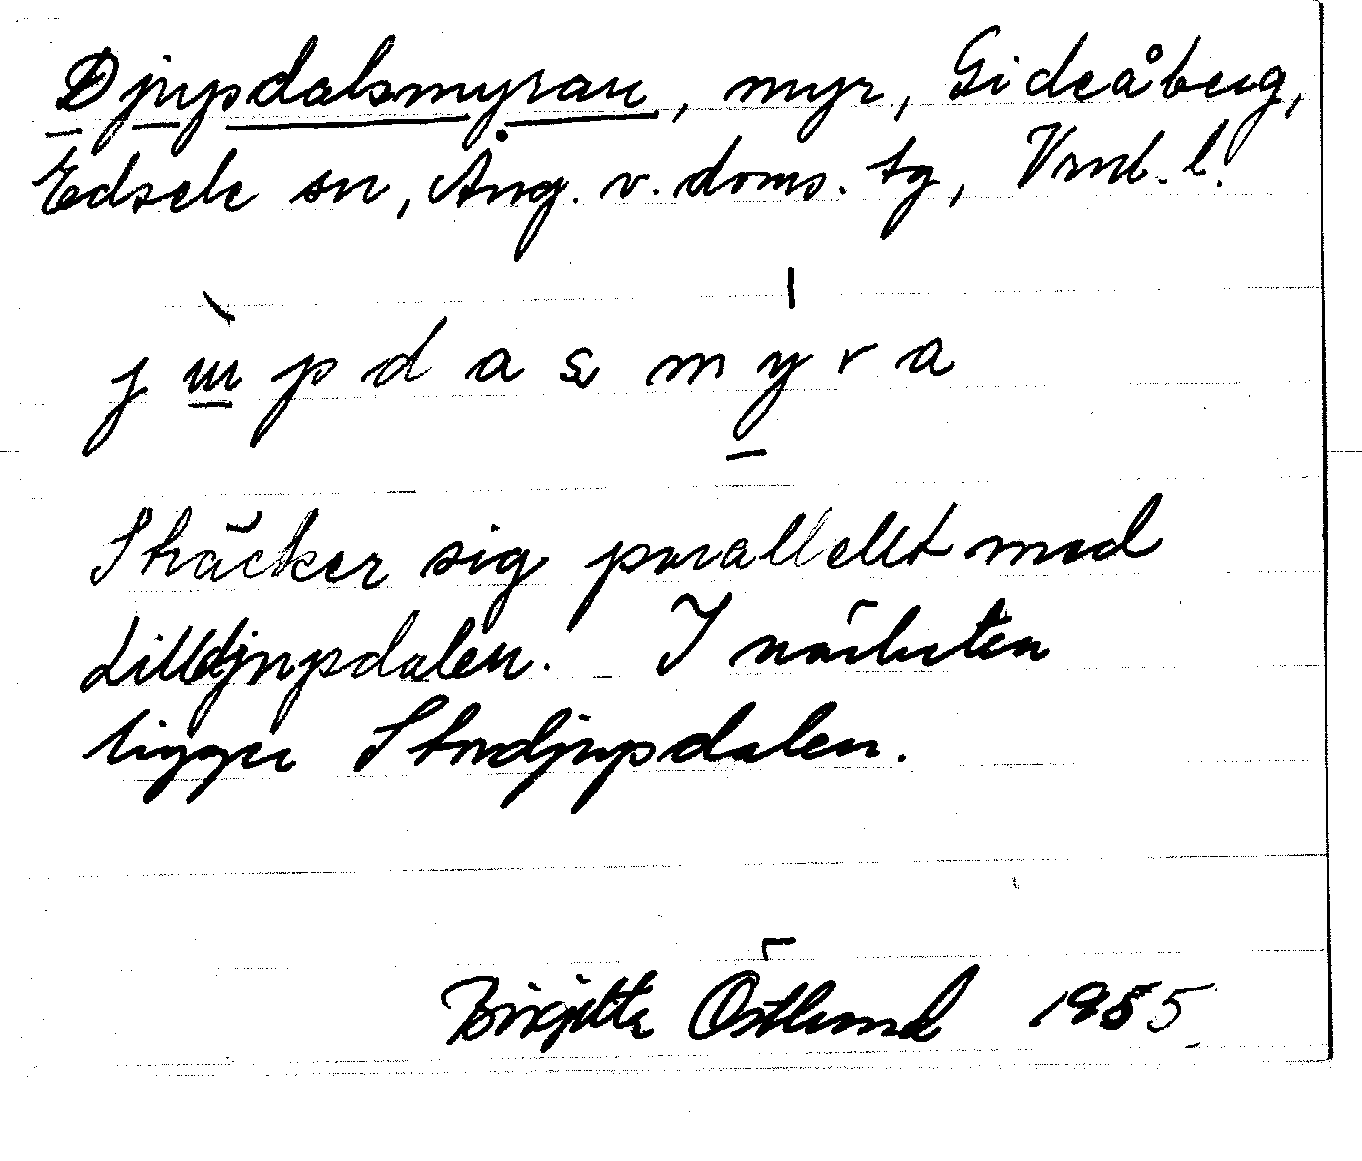 Djupdalsmyran, myr, Gideåberg,
Edsele sn, Ång. v. doms. tg, Vrnl. l.
j ɯ̀ p d a s m y̍ r a
Sträcker sig parallellt med
Lilldjupdalen. I närheten
ligger Stordjupdalen.
Birgitta Östlund 1985